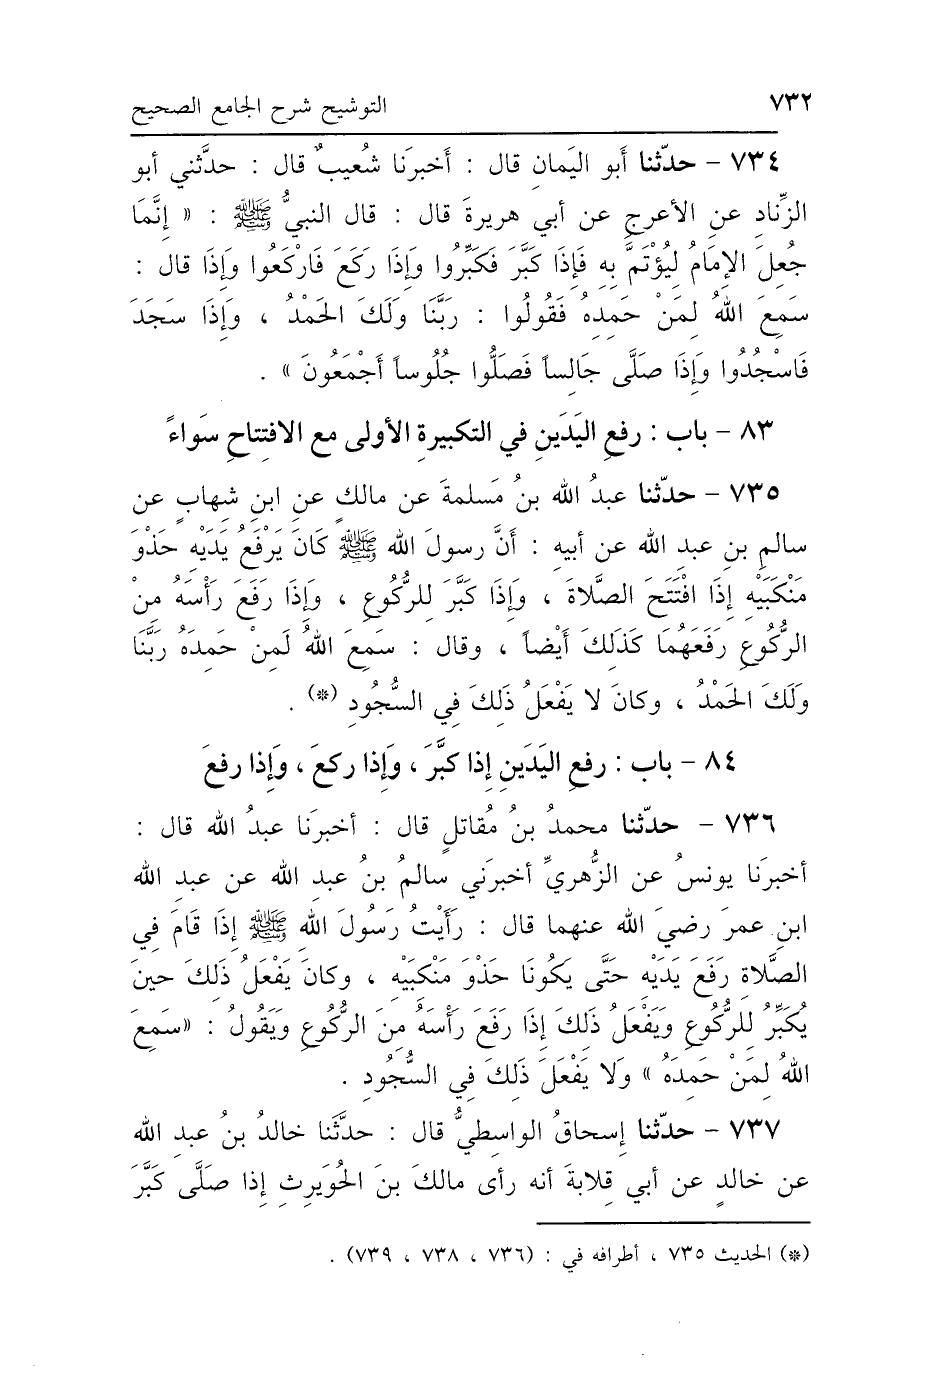 ٧٣٢ التوشيح شرح الجامع الصحيح
٧٣٤ - حدّثنا أَبو اليَمانِ قال : أَخبرَنا شُعيبٌ قال : حدَّثني أبو
الزِّنادِ عنِ الأعرجِ عن أبي هريرةَ قال : قال النبيُّ ﷺ : « إِنَّمَا
جُعِلَ الإِمَامُ لِيُؤْتَمَّ بِهِ فَإِذَا كَبَّرَ فَكَبِّرُوا وَإِذَا رَكَعَ فَارْكَعُوا وَإِذَا قال :
سَمِعَ اللهُ لِمَنْ حَمِدِهُ فَقُولُوا : رَبَّنَا وَلَكَ الحَمْدُ ، وَإِذَا سَجَدَ
فَاسْجُدُوا وَإِذَا صَلَّى جَالِساً فَصَلُّوا جُلُوساً أَجْمَعُونَ » .
٨٣ - باب : رفعِ اليَدَينِ في التكبيرةِ الأولى مع الافتِتاحِ سَواءً
٧٣٥ - حدّثنا عبدُ الله بنُ مَسلمةَ عن مالكٍ عنِ ابنِ شهابٍ عن
سالمِ بن عبدِ الله عن أبيه : أَنَّ رسولَ الله ﷺ كَانَ يَرْفَعُ يَدَيْهِ حَذْوَ
مَنْكَبَيْهِ إِذَا افْتَتَحَ الصَّلاةَ ، وَإِذَا كَبَّرَ لِلرُّكُوعِ ، وَإِذَا رَفَعَ رَأْسَهُ مِنْ
الرُّكُوعِ رَفَعَهُمَا كَذَلِكَ أَيْضاً ، وقال : سَمِعَ اللهُ لَمِنْ حَمِدَهُ رَبَّنَا
وَلَكَ الحَمْدُ ، وكانَ لا يَفْعَلُ ذَلِكَ فِي السُّجُودِ (*) .
٨٤ - باب : رفعِ اليَدَينِ إذا كبَّرَ ، وَإِذا ركعَ ، وَإِذا رفعَ
٧٣٦ - حدّثنا محمدُ بنُ مُقاتلٍ قال : أخبرَنا عبدُ الله قال :
أخبرَنا يونسُ عن الزُّهريِّ أخبرَني سالمُ بنُ عبدِ الله عن عبدِ الله
ابنِ عمرَ رضيَ الله عنهما قال : رَأَيْتُ رَسُولَ اللهِ ﷺ إِذَا قَامَ فِي
الصَّلاةِ رَفَعَ يَدَيْهِ حَتَّى يَكُونَا حَذْوَ مَنْكَبَيْهِ ، وكانَ يَفْعَلُ ذَلِكَ حِينَ
يُكَبِّرُ لِلرُّكُوعِ وَيَفْعَلُ ذَلِكَ إِذَا رَفَعَ رَأْسَهُ مِنَ الرُّكُوعِ وَيَقُولُ : «سَمِعَ
اللهُ لِمَنْ حَمِدَهُ » وَلا يَفْعَلَ ذَلِكَ فِي السُّجُودِ .
٧٣٧ - حدّثنا إسحاقُ الواسطيُّ قال : حدَّثَنا خالدُ بنُ عبدِ الله
عن خالدٍ عن أبي قِلابةَ أنه رأى مالكَ بنَ الحُوَيرثِ إِذا صَلَّى كَبَّرَ
(*) الحديث ٧٣٥ ، أطرافه في : (٧٣٦ ، ٧٣٨ ، ٧٣٩) .